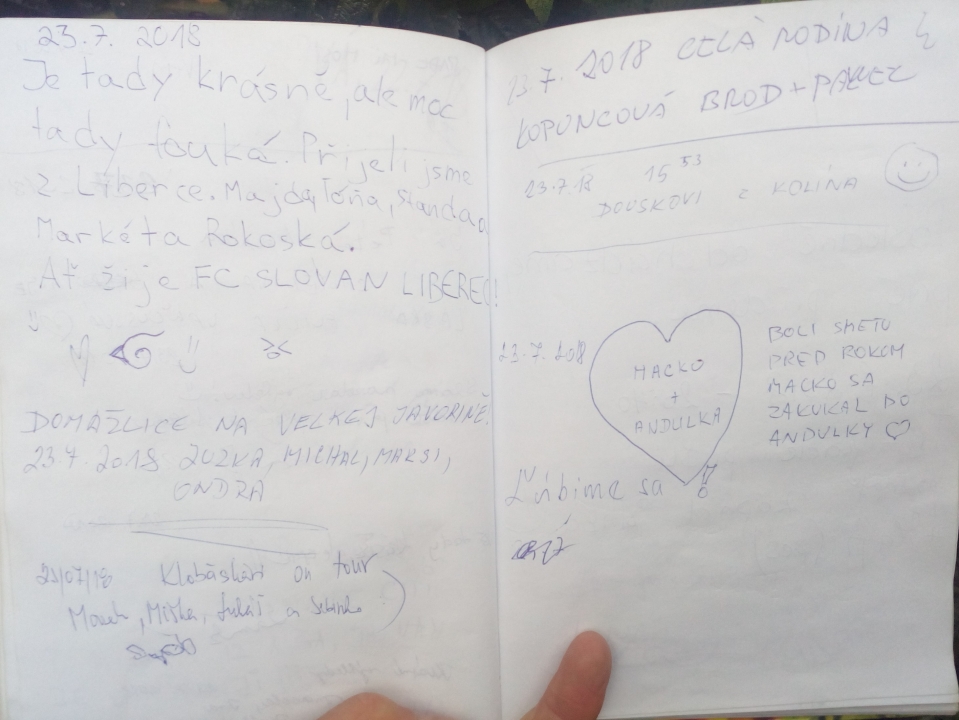 23.7. 2018
Je tady krásně, ale moc
tady fouká. Přijeli jsme
z Liberce. Majda, Tóňa, Standa a
Markéta Rokoská.
Ať žije FC SLOVAN LIBEREC!
DOMAŽLICE NA VELKEJ JAVORINĚ.
23.7.2018 ZUZKA, MICHAL, MAKSI,
ONDRA
23/07/18 Klobáskáři on tour
Marek, Miška, Lukáš a
23.7. 2018 CELÁ RODINA
KOPUNCOVÁ BROD +
23.7.18 15 53
DOUSKOVI z KOLÍNA
23.7.2018
MACKO
+
ANDULKA
BOLI SMETU
PRED ROKOM
MACKO SA
ZAKUKAL DO
ANDULKY
Ľúbime sa